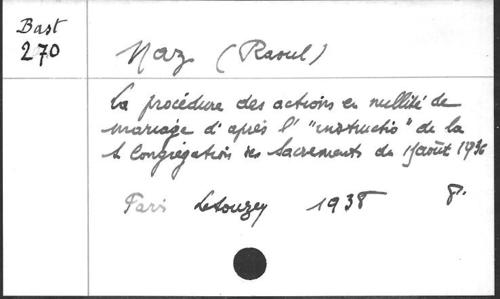 Bast
270
Naz (Raoul)
La procédure des actions en nullité de
mariage d'après l' "instructio" de la
S Congrégation des Sacrements du 15 août 1936
Paris Letouzey 1938 8°.